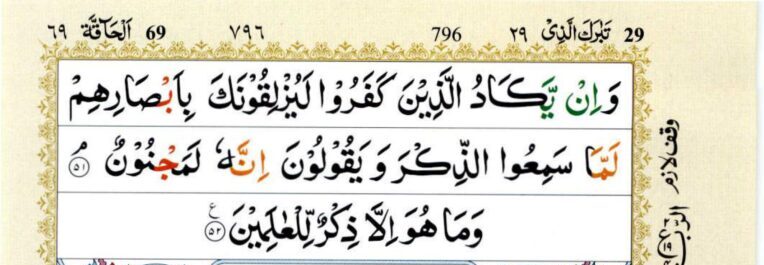 29 تَبٰرَكَ الَّذِیْ ٢٩ 796 ٧٩٦ 69 اَلْحَآقَّة ٦٩
وَاِنْ یَّكَادُ الَّذِیْنَ كَفَرُوْا لَیُزْلِقُوْنَكَ بِاَبْصَارِهِمْ
لَمَّا سَمِعُوا الذِّكْرَ وَیَقُوْلُوْنَ اِنَّهٗ لَمَجْنُوْنٌ ۘ ﴿٥١﴾
وَمَا هُوَ اِلَّا ذِكْرٌ لِّلْعٰلَمِیْنَ ﴿٥٢﴾ ع
وقف لازم